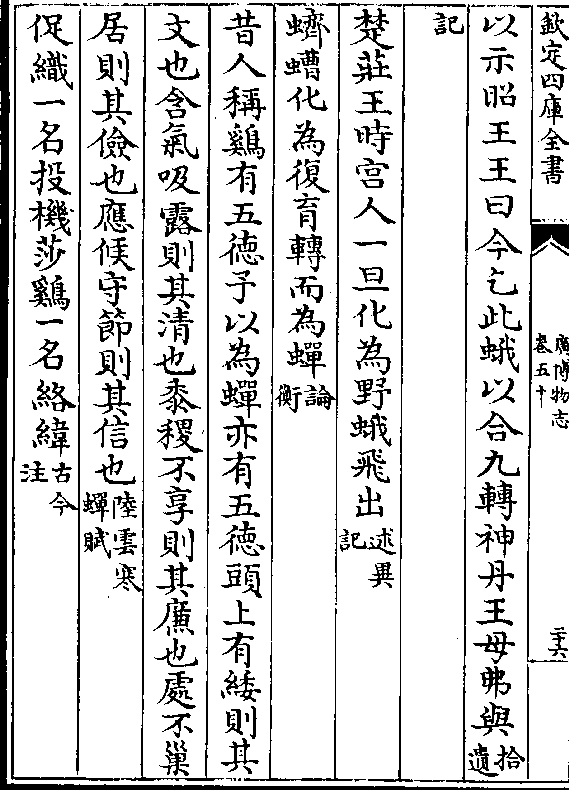 欽定四庫全書
廣博物志
卷五十
二十六
以示昭王王曰今乞此蛾以合九轉神丹王母弗與拾遺
記
楚莊王時宮人一旦化為野蛾飛出述異記
蠐螬化為復育轉而為蟬論衡
昔人稱鷄有五德予以為蟬亦有五德頭上有緌則其
文也含氣吸露則其清也黍稷不享則其廉也處不巢
居則其儉也應候守節則其信也陸雲寒蟬賦
促織一名投機莎鷄一名絡緯古今注